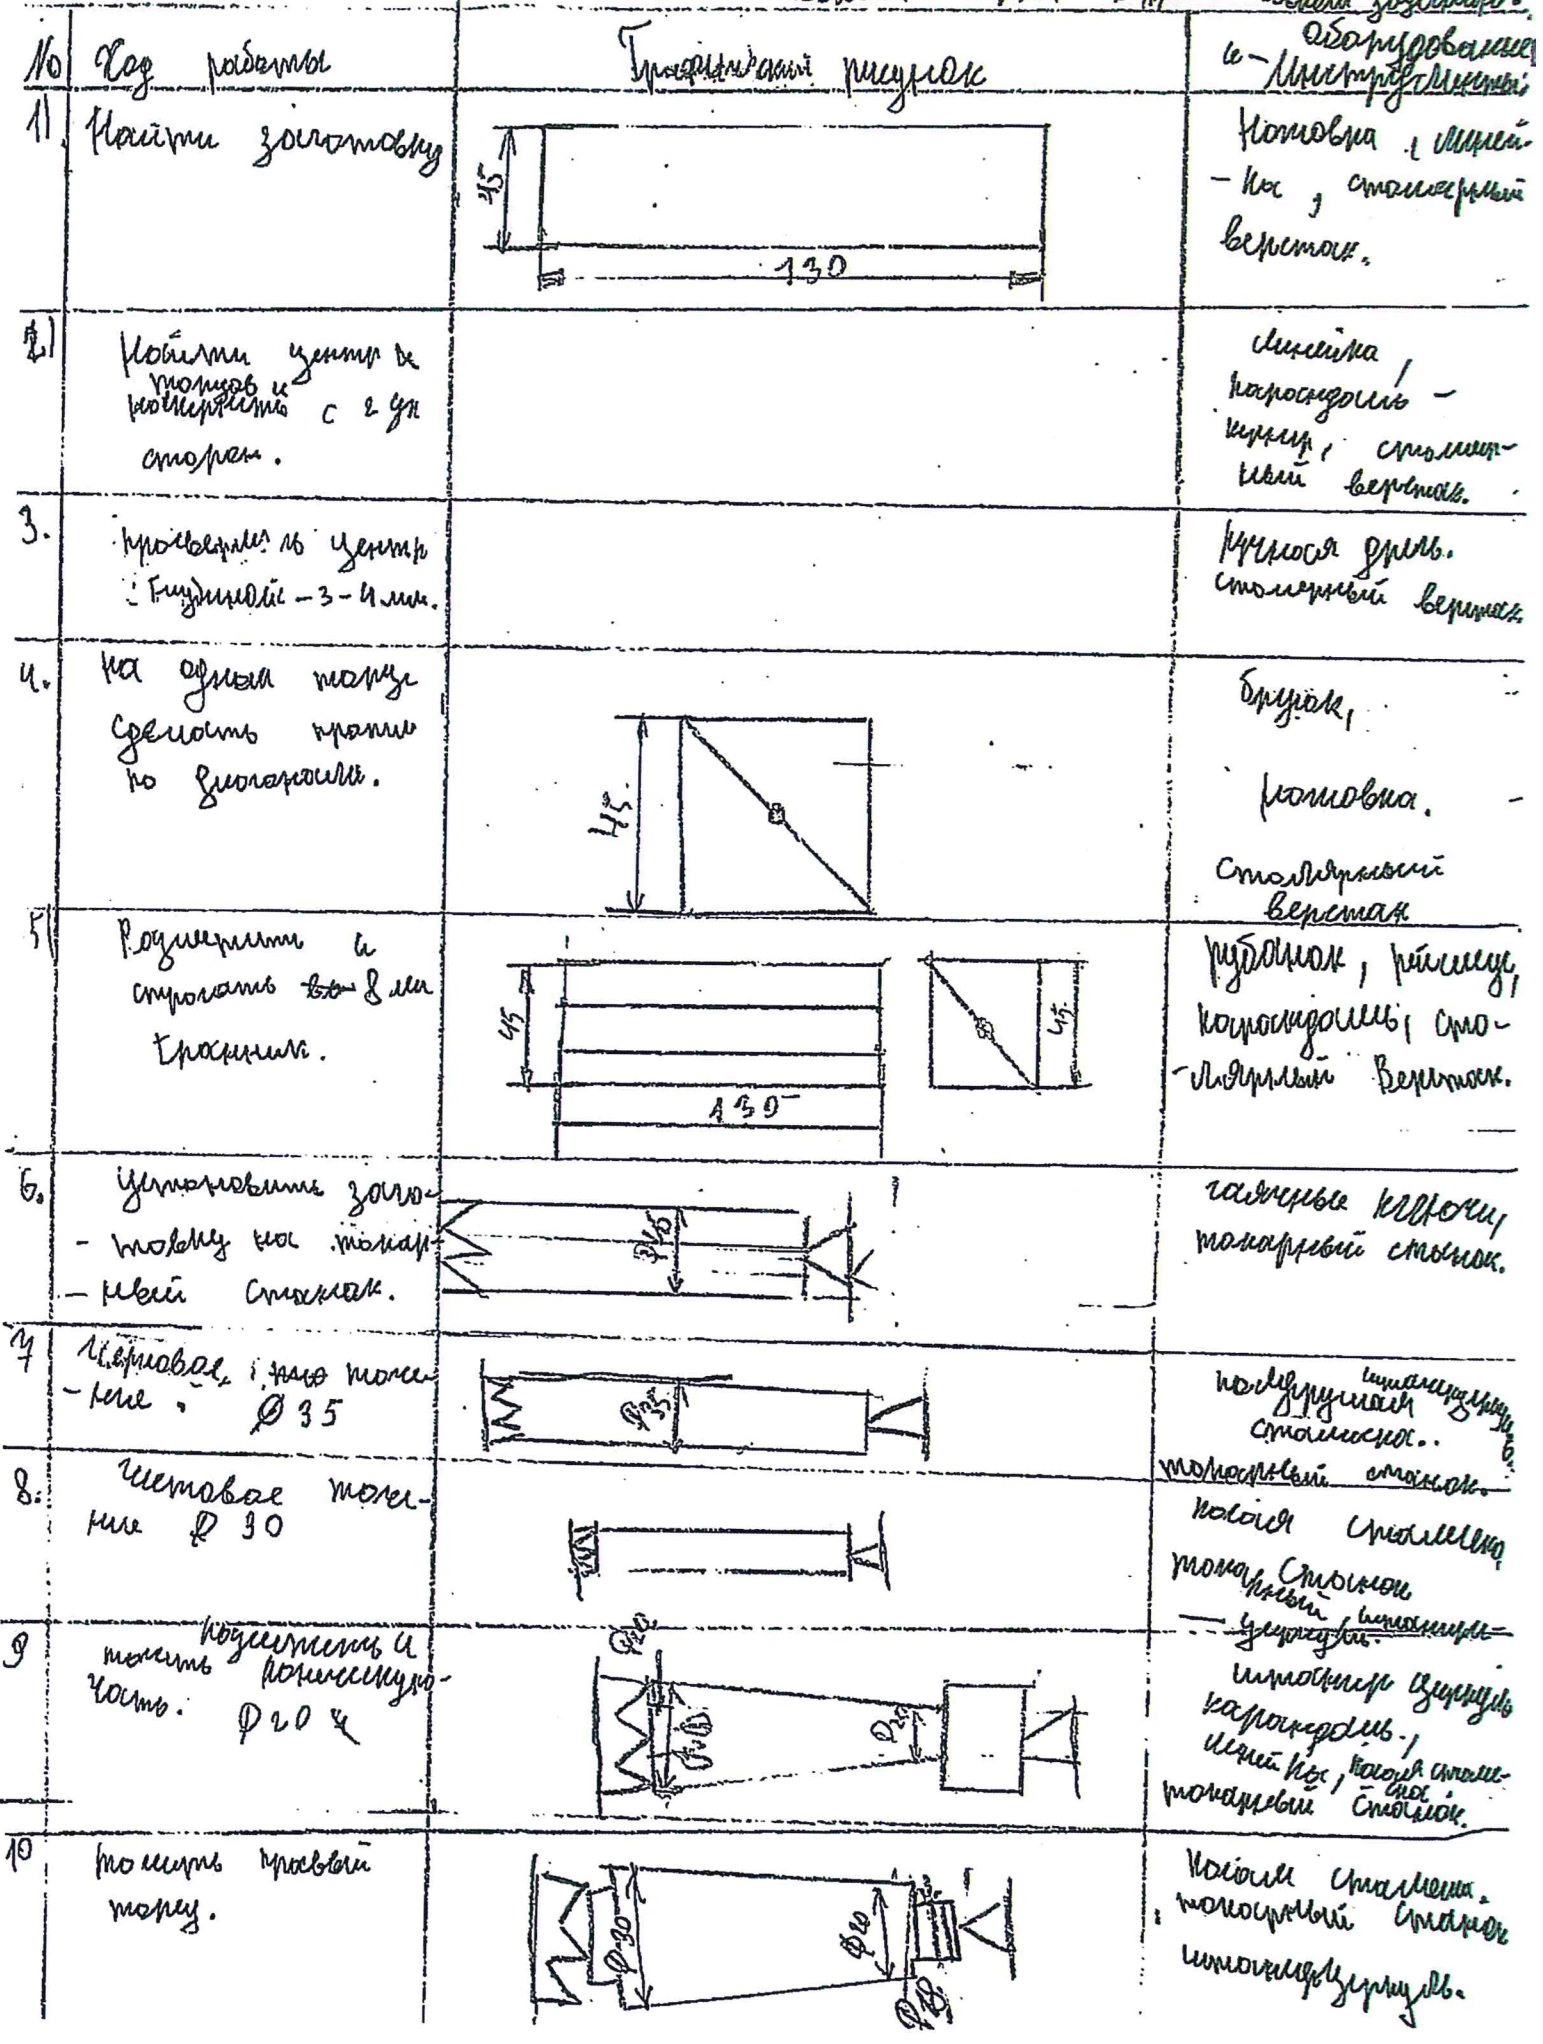 № Ход работы Графический рисунок оборудование
и-Инструменты
1) Найти заготовку
45
130
Ножовка, линей-
-ка, столярный
верстак.
2) Найти центр и
торцов и
с 2 ух
сторон.
линейка,
карандаш -
столяр-
ный верстак.
3. просверлить центр
Глубиной - 3-4 мм.
ручная дрель.
столярный верстак
4. на одном торце
сделать пропил
по диагонали.
45.
брусок,
ножовка.
столярный
верстак
5) Разметить и
строгать 8 ми
гранник.
45
130
45.
рубанок, рейсмус,
карандаш, сто-
-лярный верстак.
6. Установить заго-
- товку на токар-
- ный станок.
гаечные ключи,
токарный станок.
7 Черновое точе-
-ние. Ø 35
Ø35
полукруглая
стамеска..
токарный станок.
8. Чистовое точе-
ние Ø 30
косая стамеска,
токарный станок
штанген-
циркуль.
9 разметить и
точить коническую
часть. Ø20
Ø20
Ø20
штанген циркуль
карандаш,
линейка, косая стаме-
ска.
токарный станок.
10 точить правый
торец.
Ø30
Ø20
Ø18
косая стамеска.
токарный станок
штангенциркуль.